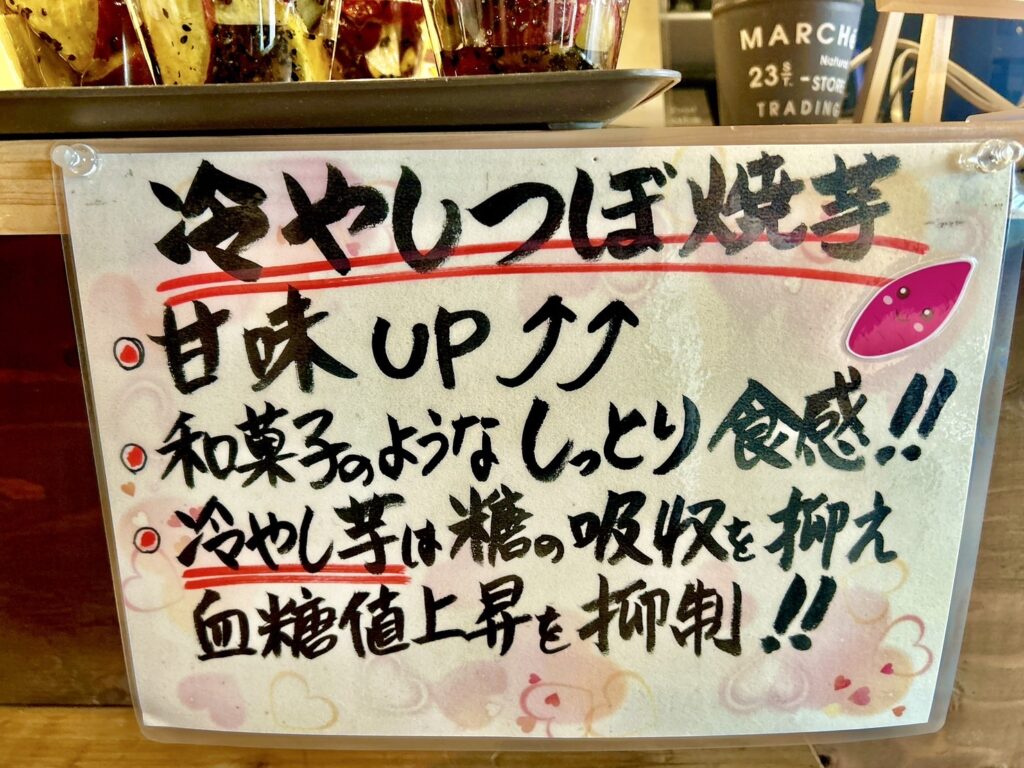 MARCHé
Natural
23 ST.-STORE
TRADING
冷やしつぼ焼芋
甘味UP↑↑
和菓子のようなしっとり食感!!
冷やし芋は糖の吸収を抑え
血糖値上昇を抑制!!